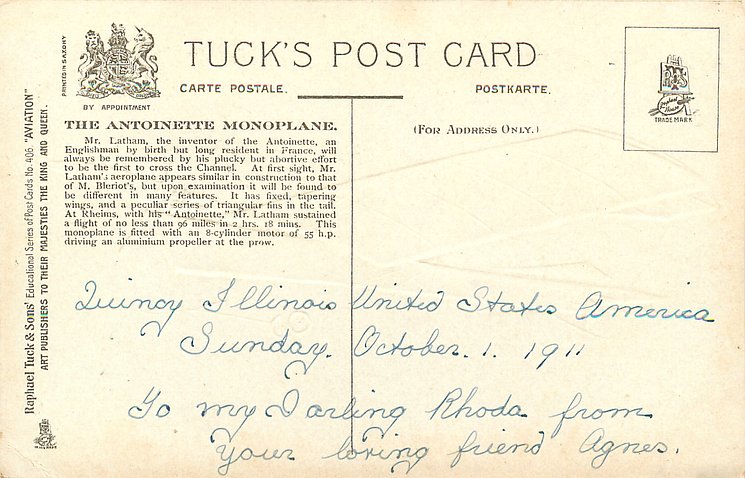 TUCK'S POST CARD
CARTE POSTALE.
POSTKARTE.
PRINTED IN SAXONY
BY APPOINTMENT
TRADE MARK
(FOR ADDRESS ONLY.)
THE ANTOINETTE MONOPLANE.
Mr. Latham, the inventor of the Antoinette, an
Englishman by birth but long resident in France, will
always be remembered by his plucky but abortive effort
to be the first to cross the Channel. At first sight, Mr.
Latham's aeroplane appears similar in construction to that
of M. Bleriot's, but upon examination it will be found to
be different in many features. It has fixed, tapering
wings, and a peculiar series of triangular fins in the tail.
At Rheims, with his "Antoinette," Mr. Latham sustained
a flight of no less than 96 miles in 2 hrs. 18 mins. This
monoplane is fitted with an 8-cylinder motor of 55 h.p.
driving an aluminium propeller at the prow.
Raphael Tuck & Sons' Educational Series of Post Cards No. 406 "AVIATION"
ART PUBLISHERS TO THEIR MAJESTIES THE KING AND QUEEN.
Quincy Illinois United States America
Sunday. October. 1. 1911
To my Darling Rhoda from
your loving friend Agnes.